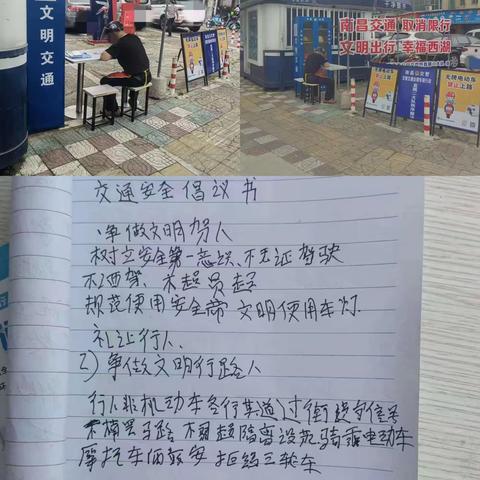 文明交通
禁止上路
南昌交通 取消限行
文明出行 幸福西湖
无牌电动车
禁止上路
交通安全倡议书
、争做文明驾人
树立安全第一意识、不无证驾驶
不酒驾、不超员超
规范使用安全带 文明使用车灯.
礼让行人、
2)争做文明行路人
行人非机动车各行其道过街
不横罢马路 不翻越隔离设施骑乘电动车
摩托车
拒绝三轮车